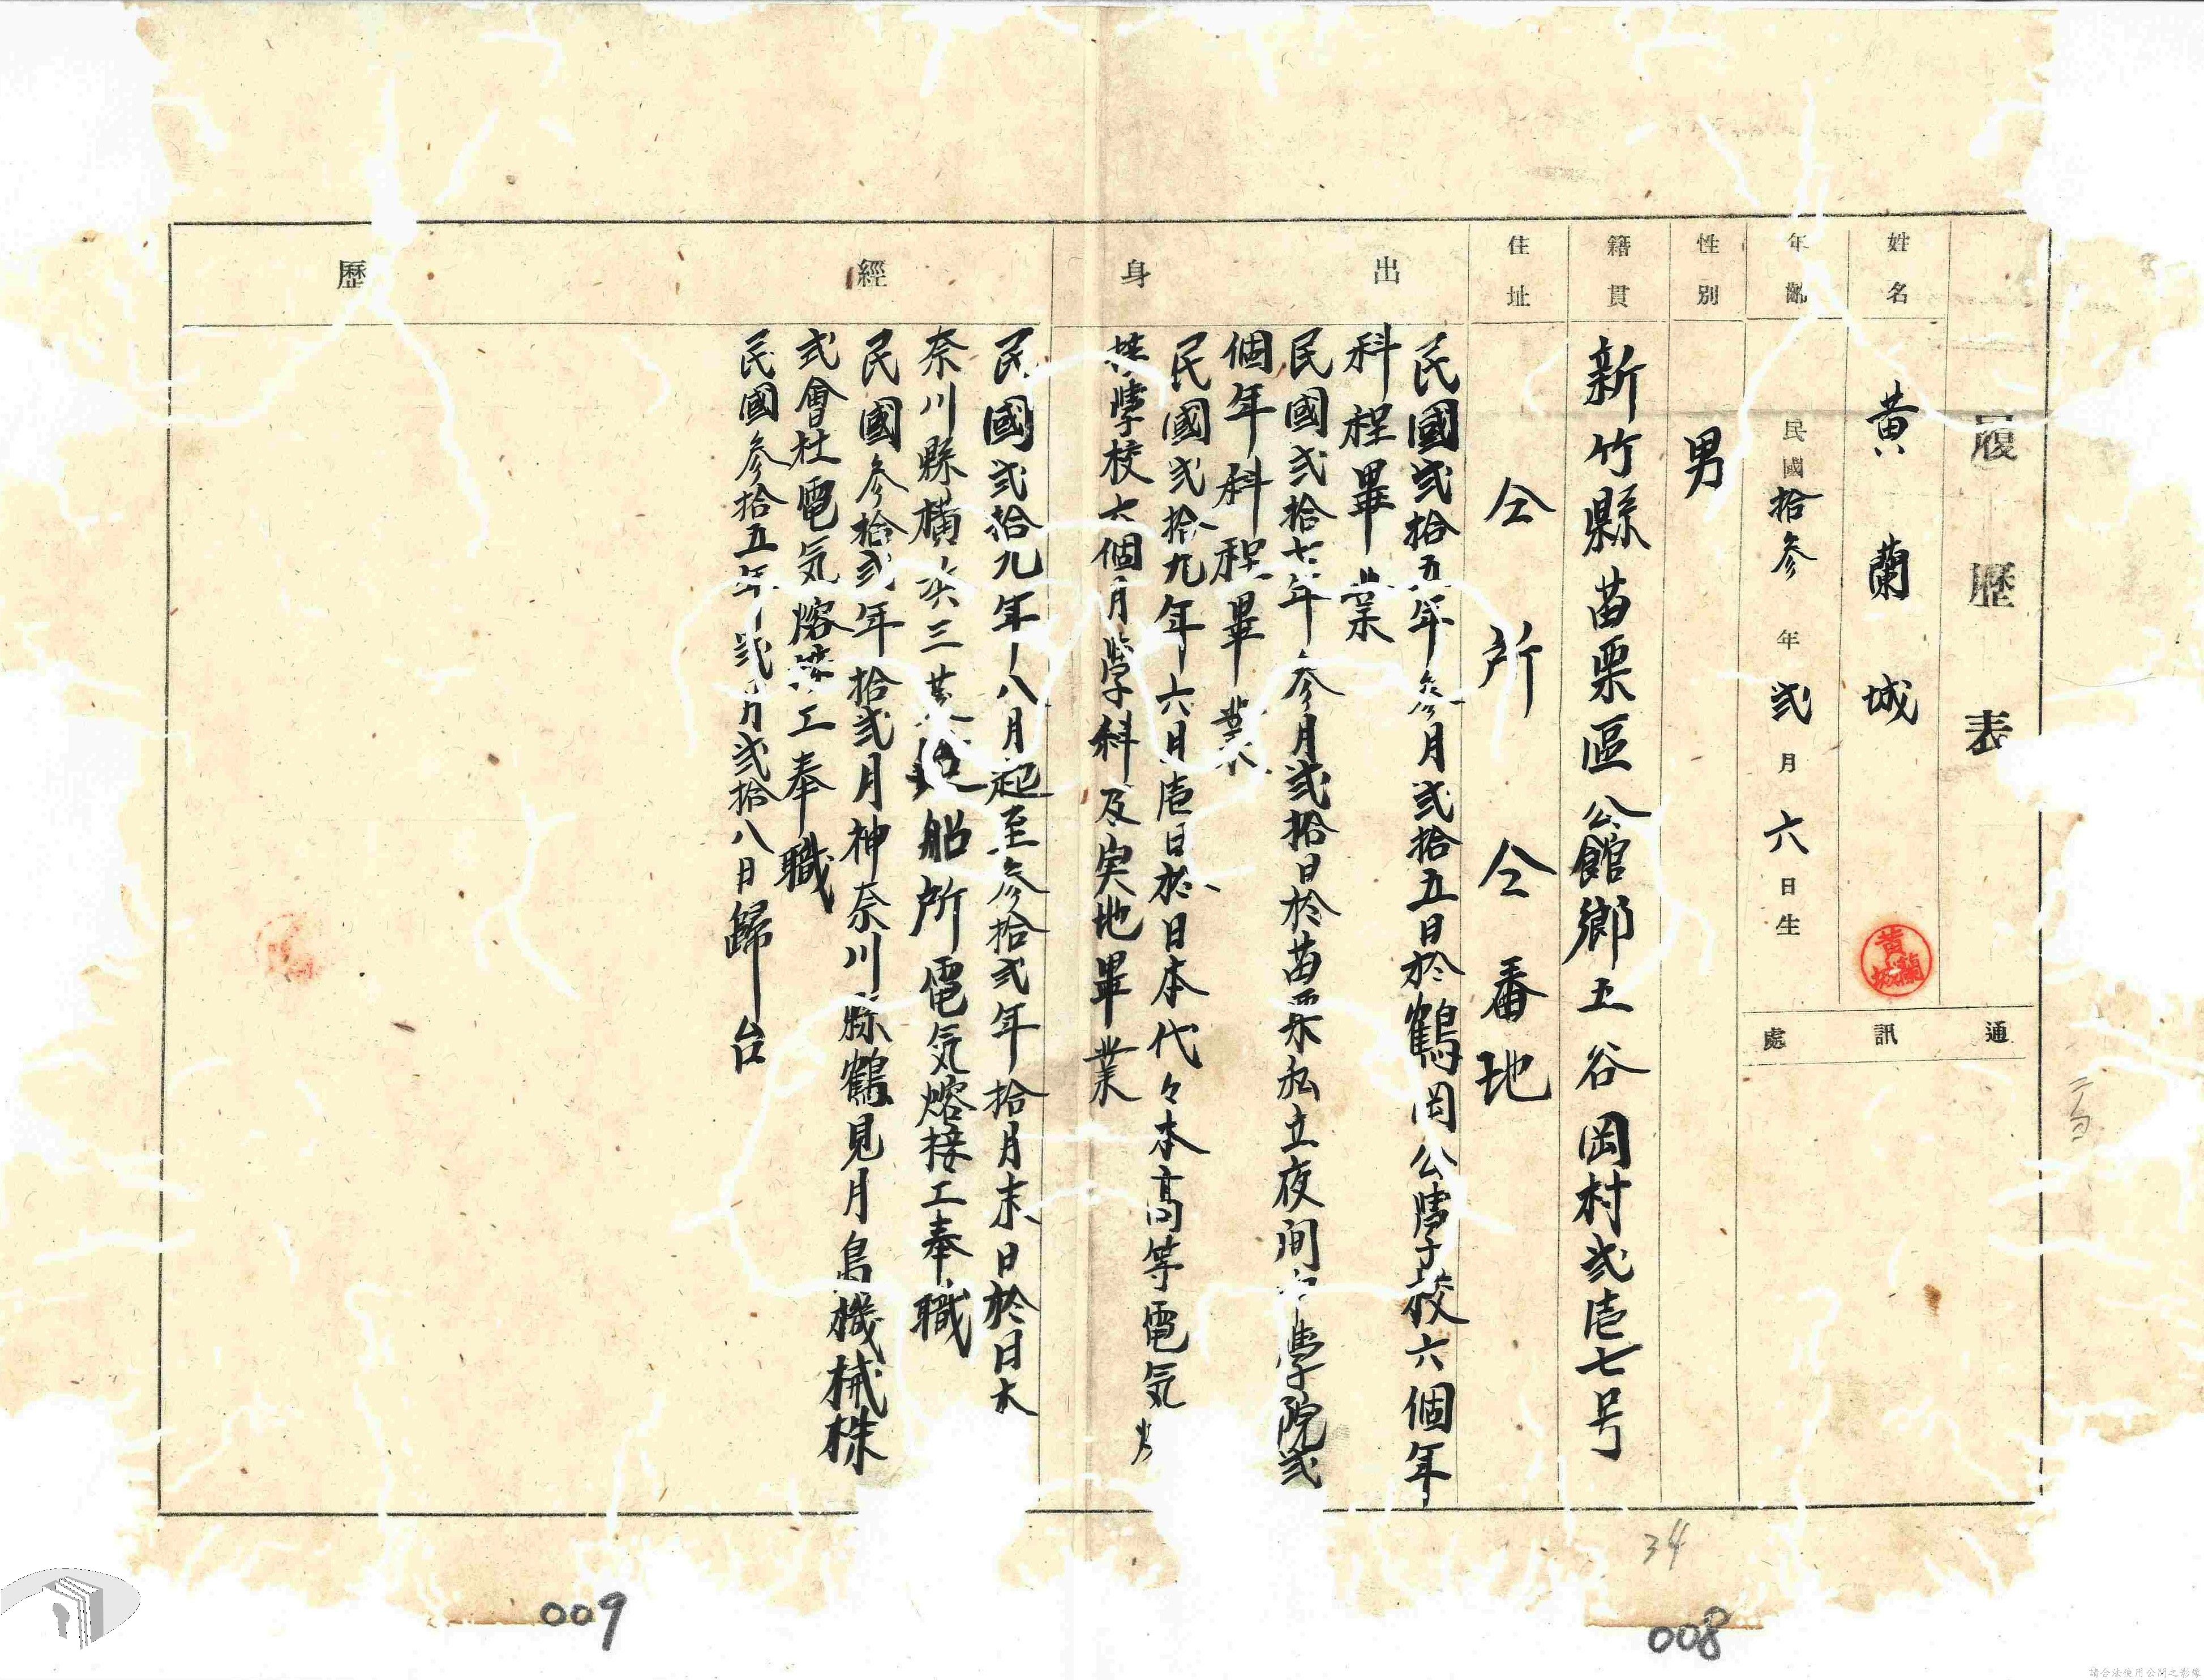 履歷表
姓名
黃蘭城
黃蘭城
通訊處
年齡
民國拾參年弍月六日生
性別
男
籍貫
新竹縣苗栗區公館鄉五谷岡村弍壱七号
住址
仝所仝番地
出身
民國弍拾五年參月弍拾五日於鶴岡公學校六個年
科程畢業
民國弍拾七年參月弍拾日於苗栗私立夜间中學院弍
個年科程畢業
民國弍拾九年六月壱日於日本代々本高等電気
接學校六個月學科及実地畢業
經歷
民國弍拾九年八月起至參拾弍年拾月末日於日本
奈川縣橫浜三菱造船所電気熔接工奉職
民國參拾弍年拾弍月神奈川縣鶴見月島機械株
式會社電気熔接工奉職
民國參拾五年弍月弍拾八日歸台
34
009
008
請合法使用公開之影像